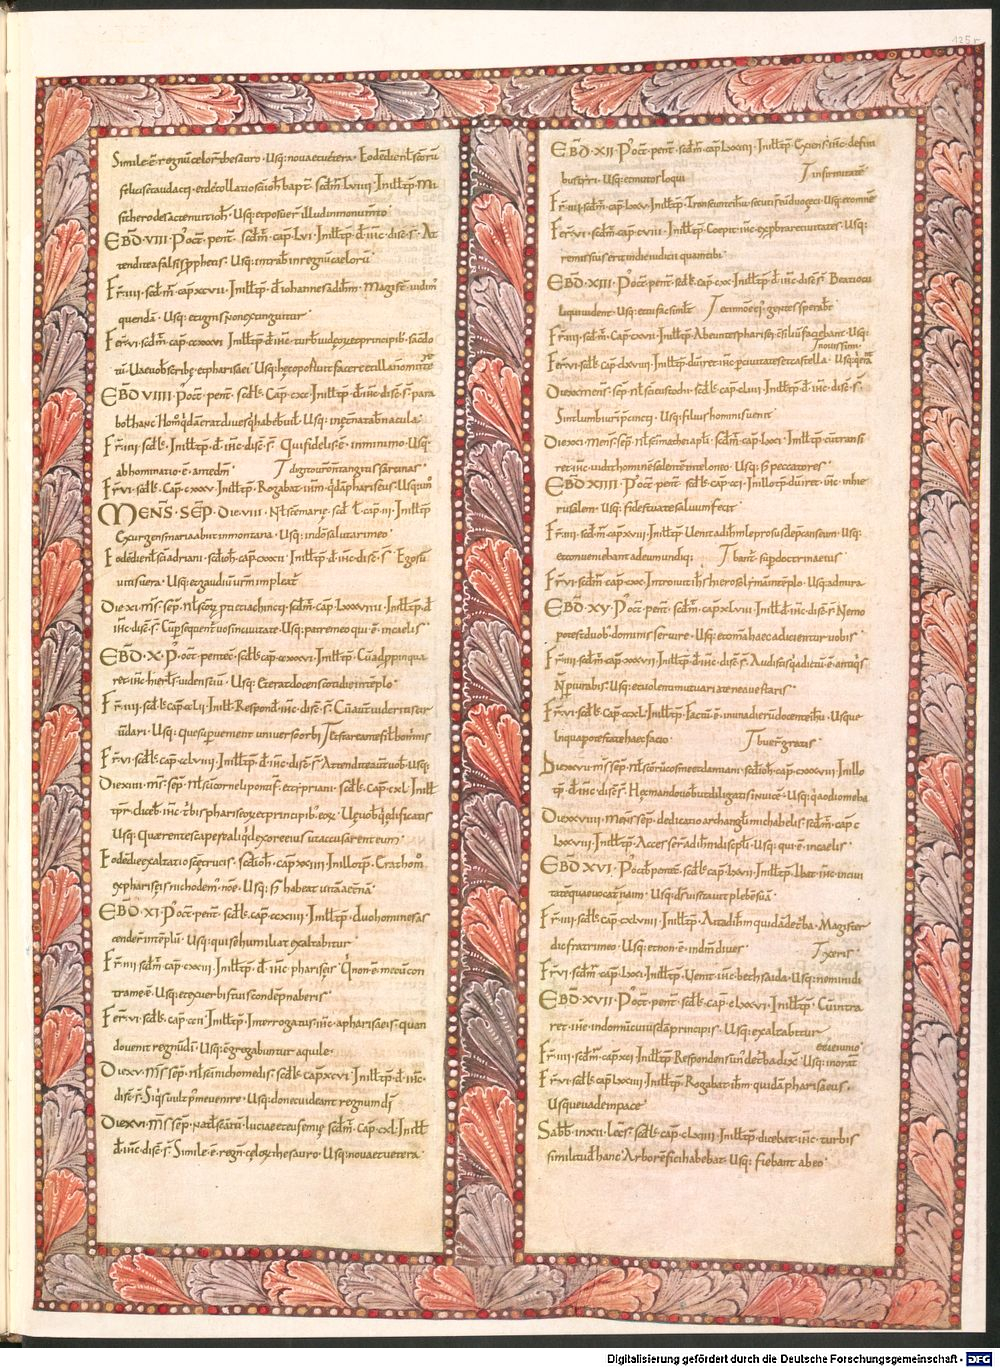 125r
Simile ē regnū celorꝝ thesauro · Usq: noua et uetera · Eodē die nt̄ scorū
felicis et audacti, et decollatio sc̄i ioh̄ bapt̄ · scdm̄ · LVIIII · In ill tp̄r · Mi
sit herodes ac tenuit ioh̄ · Usq: et posuer̄ illud in monumto
EBD · VIII · P oct̄ · pent̄ · scdm̄ · cap̄ · LVI · In ill tp̄r · d̄ ih̄c · disc̄ · s̄ · At
tendite a falsis pphetis · Usq: intrab̄ in regnū caelorū
Fr̄ · IIII · scdm̄ · cap̄ · XCVII · In ill tp̄r · d̄ iohannes ad ih̄m · Magist̄ uidim̄
quendā · Usq: et ignis non extinguitur ·
Fer̄ · VI · scdm̄ · cap̄ · CCXXXVI · In ill tp̄r · d̄ ih̄c · turb̄ iudeoꝝ et principib · sacdo
tū · Uae uob̄ scribę et pharisaei · Usq: haec oportuit facere et illa non omitte
re
EBD · VIIII · P oct̄ · pent̄ · scdl̄c · Cap̄ · CXC · In ill tp̄r · d̄ · ih̄c disc̄ · s̄ · para
bol hanc · Homo qdā erat diues q habeb uil · Usq: in ęterna tabnacula ·
Fr̄ · IIII · scdl̄c · In ill tp̄r · d̄ · ih̄c · disc̄ · s̄ · Qui fidelis ē · in minimo · Usq:
abhominatio ē · ante dm̄ · T digitorū non tangitis sarcinas ·
Fr̄ · VI · scdl̄c · Cap̄ · CXXXV · In ill tp̄r · Rogabat ih̄m · qdā phariseus · Usq: uno
MENS · SEP̄ · Die · VIII · Nt̄ sc̄e marię · scd̄ l̄ · cap̄ · III · In ill tp̄r
Exurgens maria abiit in montana · Usq: in dō salutari meo
Eodē die nt̄ sc̄i adriani · scd̄ ioh̄ · cap̄ · CXXXII · In ill tp̄r · d̄ ih̄c · disc̄ · s̄ · Ego sū
uitis uera · Usq: et gaudiū ur̄m impleat
Die XI · m̄s · sep̄ · nt̄ scoꝝ pti et iachincti · scdm̄ · cap̄ · LXXXVIIII · In ill tp̄r · d̄
ih̄c · disc̄ · s̄ · Cū psequent̄ uos in ciuitate · Usq: patre meo qui ē · in caelis
EBD · X · P oct̄ · pentec̄ · scdl̄c · cap̄ · CCXXXVI · In ill tp̄r · Cū adppinqua
ret · ih̄c · hierl̄m · uidens ciui · Usq: Et erat docens cotidie in templo
Fr̄ · IIII · scdl̄c · cap̄ · CCLII · In ill · Respond̄ · ih̄c · disc̄ · s̄ · Cū aut̄ uideritis cir
cūdari · Usq: Quę supuenient uniuerso orbi T et stare ante fil hominis
Fr̄ · VI · scdl̄c · cap̄ · CLVIII · In ill tp̄r · d̄ · ih̄c · disc̄ · s̄ · Attendite aut̄ uob · Usq:
Die XIIII · m̄s · sep̄ · nt̄ sc̄i cornelii pontif̄ · et cipriani · scdl̄c · Cap̄ · CXL · In ill
tp̄r · diceb · ih̄c · t̄bis pharisęoꝝ et principib · eoꝝ · Uę uob q ędificatis
Usq: Querentes capere aliqd ex ore eius ut accusarent eum
Eodē die exaltatio sc̄ę crucis · scd̄ ioh̄ · cap̄ · XXIIII · In illo tp̄r · Erat homo
ex pharisęis nichodem · noē · Usq: s; habeat uitā aet̄nā ·
EBD · XI · P oct̄ · pent̄ · scdl̄c · cap̄ · CCXIIII · In ill tp̄r · duo homines as
cender̄ in teplū · Usq: qui se humiliat exaltabitur
Fr̄ · IIII · scdm̄ · cap̄ · CXXIII · In ill tp̄r · d̄ · ih̄c · pharisęis · Qi non ē · mecū con
tra me ē · Usq: et ex uerbis tuis condēpnaberis ·
Fer̄ · VI · scdl̄c · cap̄ · CCII · In ill tp̄r · Interrogatus · ih̄c · a pharisaeis · quan
do uenit regnū dī · Usq: ęgregabuntur aquile ·
Die XV · m̄s · sep̄ · nt̄ sc̄i nichomedis · scdl̄c · cap̄ · XCVI · In ill tp̄r · d̄ · ih̄c ·
disc̄ · s̄ · Siqs uult p me uenire · Usq: donec uideant regnum dī
Die XVI · m̄s · sep̄ · nat̄ scarū · luciae et eufemię scdm̄ · Cap̄ · CXL · In ill
d̄ · ih̄c · disc̄ · s̄ · Simile ē · regn̄ · cęloꝝ thesauro · Usq: noua et uetera ·
EBD · XII · P oct̄ · pent̄ · scdm̄ · cap̄ · LXXIIII · In ill tp̄r · Exiens ih̄c · de fini
bus tyri · Usq: et mutos loqui T infirmitatē
Fr̄ · IIII · scdm̄ · cap̄ · LXXV · In ill tp̄r · Transeunte ih̄u · secuti sē duo cęci · Usq: et omnē
Fer̄ · VI · scdm̄ · cap̄ · CVIII · In ill tp̄r · Coepit · ih̄c · expbrare ciuitates · Usq:
remissius erit in die iudicii quam tibi ·
EBD · XIII · P oct̄ · pent̄ · scdl̄c · cap̄ · CXX · In ill tp̄r · d̄ ih̄c · disc̄ · s̄ · Beati ocu
li qui uident · Usq: et tu fac similit̄ T et in noē ei gentes sperab
Fr̄ · IIII · scdm̄ · cap̄ · CXVII · In ill tp̄r · Abeuntes pharisęi csiliū faciebant · Usq:
Fer̄ · VI · scdl̄c · cap̄ · CLXVIIII · In ill tp̄r · dū iret · ih̄c · p ciuitates et castella · Usq:
T nouissimi
Die X mens̄ · sep̄ · nt̄ sc̄i · scdl̄c · cap̄ · CLVII · In ill tp̄r · d̄ ih̄c · disc̄ · s̄ ·
Sint lumbi uri pcincti · Usq: filius hominis ueniet ·
Die XXI · Mens̄ · sep̄ · nt̄ sc̄i mathei apli · scdm̄ · cap̄ · LXXI · In ill tp̄r · cū transi
ret · ih̄c · uidit hominē sedentē in teloneo · Usq: s; peccatores ·
EBD · XIIII · P oct̄ · pent̄ · scdl̄c · cap̄ · CCI · In illo tp̄r · dū iret · ih̄c · in hie
rusalem · Usq: fides tua te saluum fecit
Fr̄ · IIII · scdm̄ · cap̄ · XVIII · In ill tp̄r · Uenit ad ih̄m leprosus dep̄cans eum · Usq:
et conueniebant ad eum undiq; T bant̄ · sup doctrina eius ·
Fr̄ · VI · scdm̄ · cap̄ · CXX · In ill tp̄r · Introiuit ih̄s hierosolymā in tēplo · Usq: admira
EBD · XV · P oct̄ · pent̄ · scdm̄ · cap̄ · XLVIII · In ill · d̄ · ih̄c · disc̄ · s̄ · Nemo
potest duob dominis seruire · Usq: et omīa haec adicientur uobis ·
Fr̄ · IIII · scdm̄ · cap̄ · XXXVII · In ill tp̄r · d̄ · ih̄c · disc̄ · s̄ · Audistis q dictū ē · antiqis
N piurabis · Usq: et uolenti mutuari a te ne auertaris ·
Fr̄ · VI · scdl̄c · Cap̄ · CCXL · In ill tp̄r · Factū ē · in una dierū docente ih̄u · Usque
In qua potestate haec facio · T bueri gratis ·
Die XXVII · m̄s · sep̄ · nt̄ scorū cosme et damiani · scd̄ ioh̄ · cap̄ · CXXXVIII · In illo
tp̄r · d̄ · ih̄c · disc̄ · s̄ · Hęc mando uob ut diligatis inuicē · Usq: qa odio me ha
Die XXVIIII · mens̄ sep̄ · dedicatio archangli michahelis · scdm̄ · cap̄ · C
LXXVII · In ill tp̄r · Accesser̄ ad ih̄m discpli · Usq: qui ē · in caelis ·
EBD · XVI · P oct̄ · pentēs · scdl̄c · cap̄ · LXVII · In ill tp̄r · Ibat · ih̄c · in ciui
tatē quae uocat̄ naim · Usq: ds̄ uisitauit plebē suā ·
Fr̄ · IIII · scdl̄c · cap̄ · CXLVIII · In ill tp̄r · Ait ad ih̄m quidā de t̄ba · Magister
dic fratri meo · Usq: et non ē · in dm̄ diues · T xeris
Fr̄ · VI · scdm̄ · cap̄ · LXXI · In ill tp̄r · Uenit · ih̄c · bethsaida · Usq: nemini di
EBD · XVII · P oct̄ · pent̄ · scdl̄c · cap̄ · CLXXVI · In ill tp̄r · Cū intra
ret · ih̄c · in domū cuiusdā principis · Usq: exaltabitur
Fr̄ · IIII · scdm̄ · cap̄ · XCI · In ill tp̄r · Respondens un̄ de t̄ba dix̄ · Usq: in orat̄
et ieiunio
Fr̄ · VI · scdl̄c · cap̄ · LXXIIII · In ill tp̄r · Rogabat ih̄m · quidā pharisaeus ·
Usque uade in pace
Sabb · in XII · Lec̄s · scdl̄c · cap̄ · CLXIIII · In ill tp̄r · dicebat · ih̄c · turbis
similitud̄ hanc Arborē fici habebat · Usq: fiebant ab eo ·
Digitalisierung gefördert durch die Deutsche Forschungsgemeinschaft - DFG